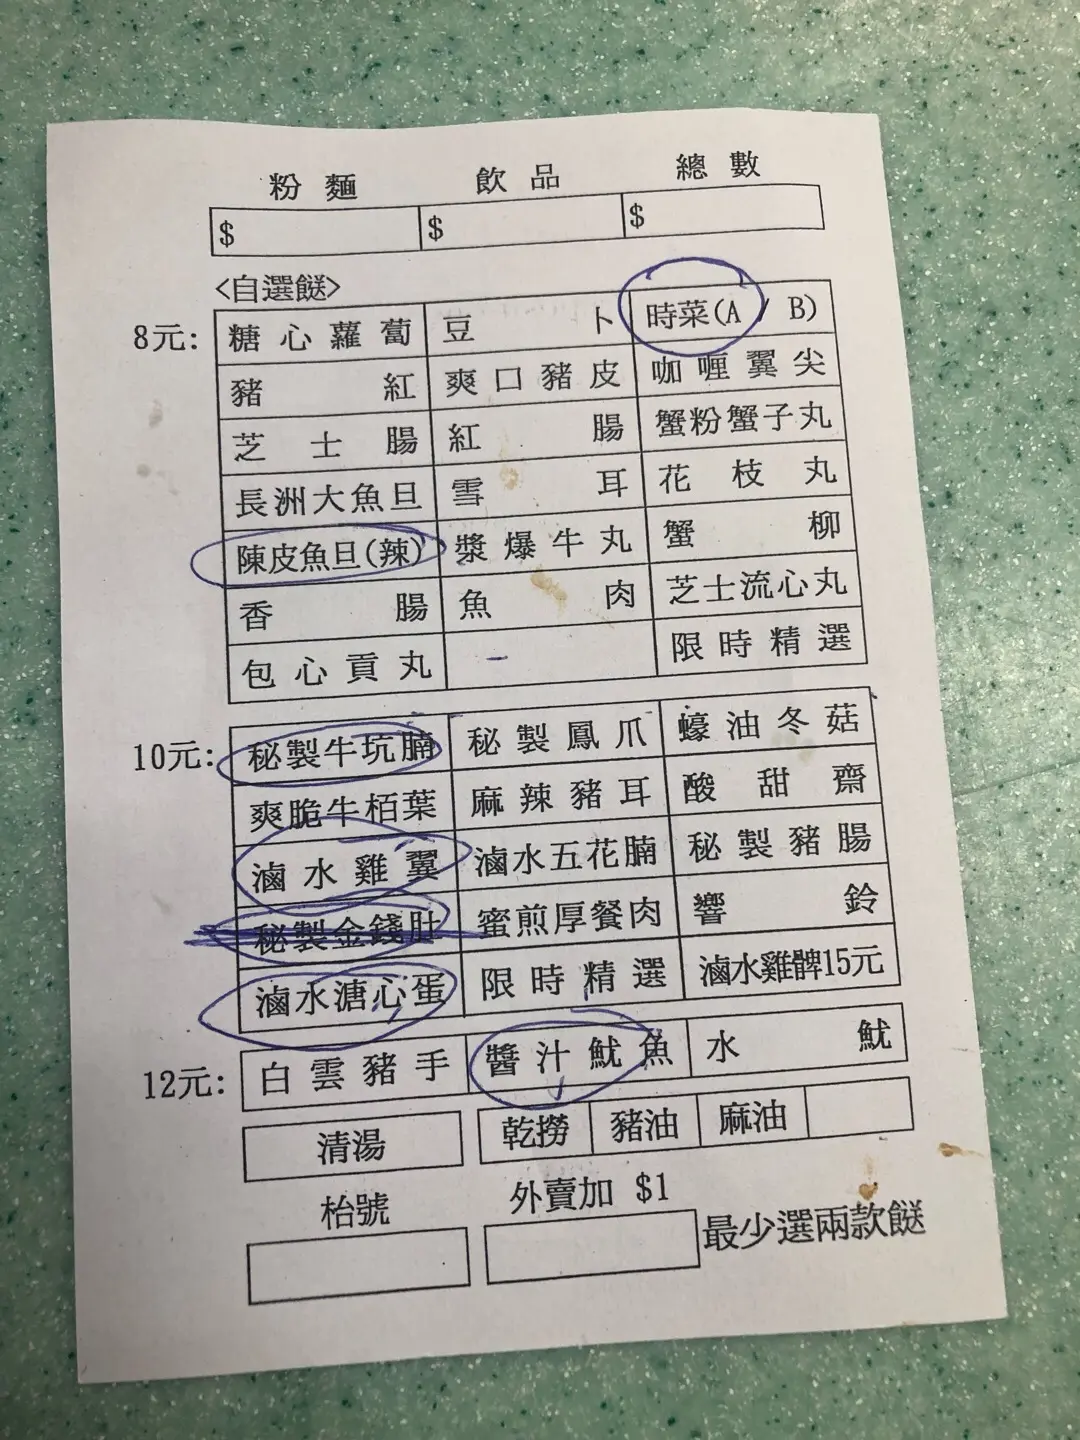 粉麵 飲品 總數
$ $ $
<自選餸>
8元: 糖心蘿蔔 豆卜 時菜(A / B)
豬紅 爽口豬皮 咖喱翼尖
芝士腸 紅腸 蟹粉蟹子丸
長洲大魚旦 雪耳 花枝丸
陳皮魚旦(辣) 漿爆牛丸 蟹柳
香腸 魚肉 芝士流心丸
包心貢丸 限時精選
10元: 秘製牛坑腩 秘製鳳爪 蠔油冬菇
爽脆牛栢葉 麻辣豬耳 酸甜齋
滷水雞翼 滷水五花腩 秘製豬腸
秘製金錢肚 蜜煎厚餐肉 響鈴
滷水溏心蛋 限時精選 滷水雞髀15元
12元: 白雲豬手 醬汁魷魚 水魷
清湯 乾撈 豬油 麻油
枱號 外賣加 $1
最少選兩款餸